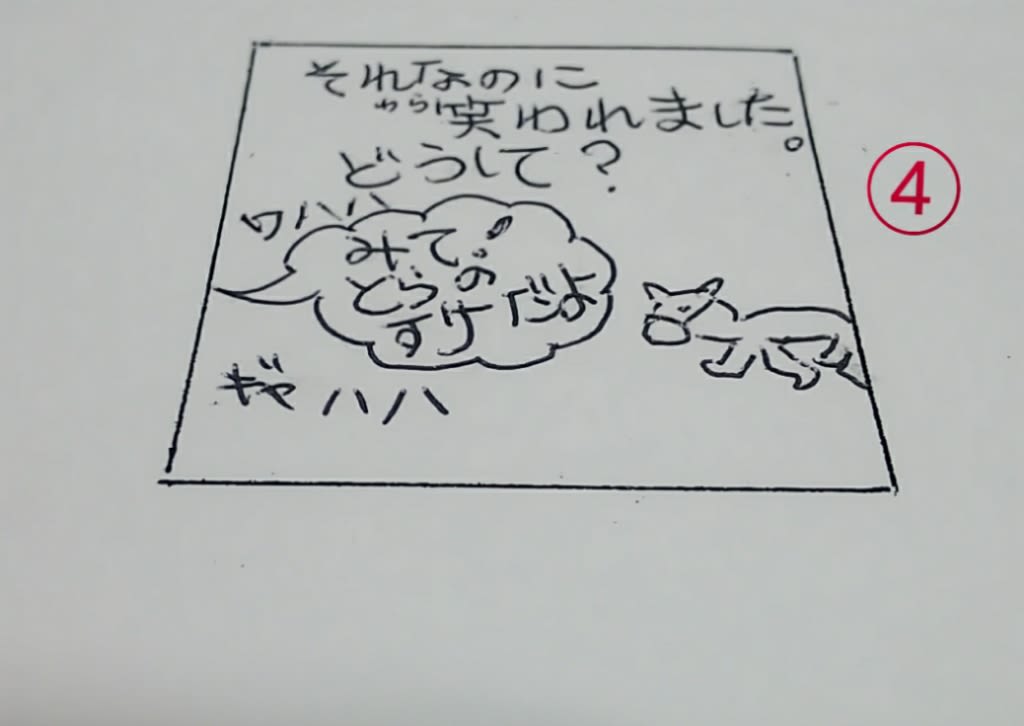 それなのに
わら
笑われました。
どうして?
ワハハ
みて!
どらの
すけだよ
ギャハハ
④